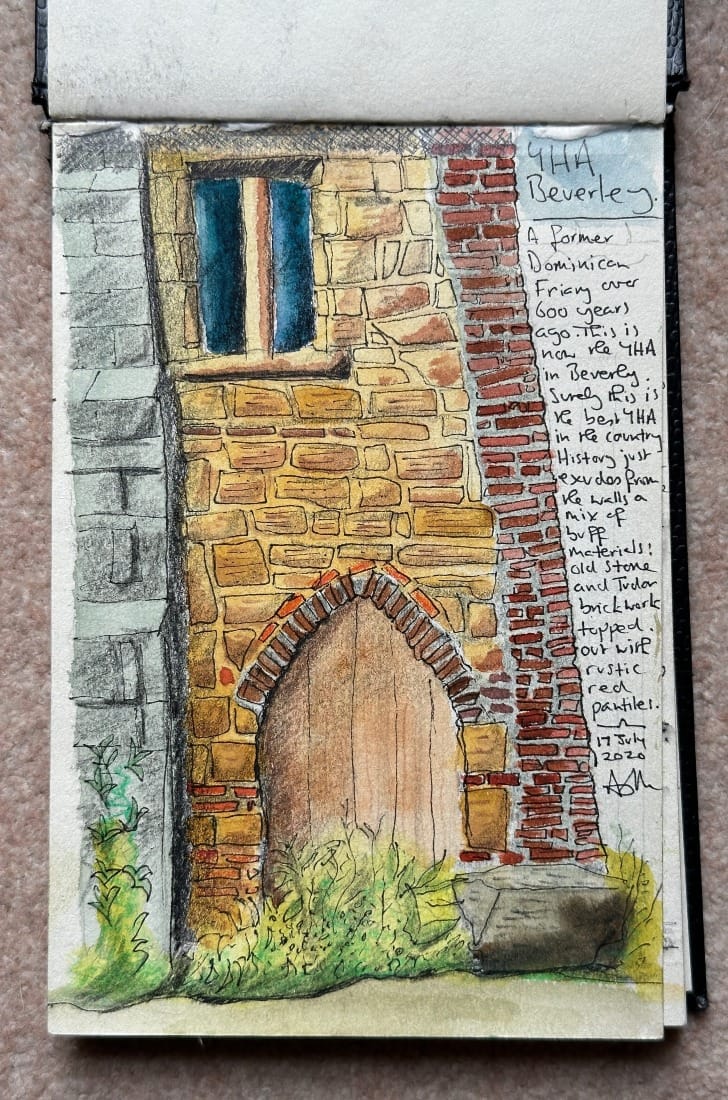 YHA
Beverley.
A former
Dominican
Friary over
600 years
ago. This is
now the YHA
in Beverly.
Surely this is
the best YHA
in the country
History just
exudes from
the walls a
mix of
buff
materials:
old stone
and Tudor
brickwork
topped
out with
rustic
red
pantiles.
17 July
2020